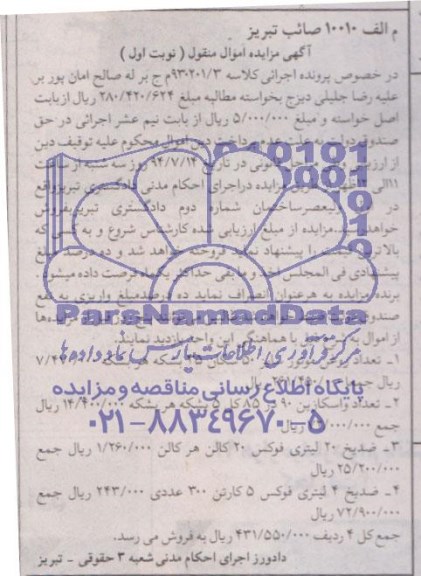 م الف ۱۰۰۱۰ صائب تبریز
آگهی مزایده اموال منقول ( نوبت اول )
در خصوص پرونده اجرائی کلاسه ۹۳۰۲۰۱/۳م ج بر له صالح امان پور بر
علیه رضا جلیلی دیزج بخواسته مطالبه مبلغ ۲۸۰/۴۲۰/۶۲۴ ریال از بابت
اصل خواسته و مبلغ ۵/۰۰۰/۰۰۰ ریال از بابت نیم عشر اجرائی در حق
صندوق دولت علیه توقیف دین
از در تاریخ ۹۴/۷/۱۴ روز سه شنبه از ساعت
۱۱الی در اجرای احکام مدنی دادگستری تبریز واقع
در ولیعصر ساختمان شماره دوم دادگستری تبریز بفروش
خواهد مزایده از مبلغ ارزیابی شده کارشناس شروع و به کسی که
بالاترین قیمت را پیشنهاد نماید فروخته خواهد شد و ده درصد مبلغ
پیشنهادی فی المجلس اخذ و مابقی حداکثر یکماه فرصت داده میشود.
برنده مزایده به هر عنوان انصراف نماید ده درصد مبلغ واریزی به نفع
صندوق
از اموال به با هماهنگی این واحد بازدید نمایند.
ParsNamadData
مرکز فرآوری اطلاعات پارس نماد داده ها
پایگاه اطلاع رسانی مناقصه و مزایده
۰۲۱-۸۸۳۴۹۶۷۰-۵
۱ـ تعداد روغن موتور
ریال جمع
۲ـ تعداد واسکازین ۹۰ در ۸۵ هر بشکه ۱۴/۴۰۰/۰۰۰ ریال
جمع ریال
۳ـ ضدیخ ۲۰ لیتری فوکس ۲۰ گالن هر گالن ۱/۲۶۰/۰۰۰ ریال جمع
۲۵/۲۰۰/۰۰۰ ریال
۴ـ ضدیخ ۴ لیتری فوکس ۵ کارتن ۳۰۰ عددی ۲۴۳/۰۰۰ ریال جمع
۷۲/۹۰۰/۰۰۰ ریال
جمع کل ۴ ردیف ۴۳۱/۵۵۰/۰۰۰ ریال به فروش می رسد.
دادورز اجرای احکام مدنی شعبه ۳ حقوقی - تبریز